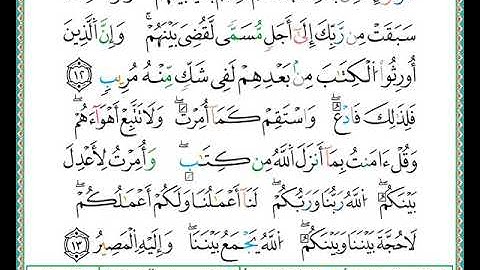 سَبَقَتْ مِن رَّبِّكَ إِلَىٰٓ أَجَلٍ مُّسَمًّى لَّقُضِىَ بَيْنَهُمْ ۚ وَإِنَّ ٱلَّذِينَ
أُورِثُوا۟ ٱلْكِتَٰبَ مِنۢ بَعْدِهِمْ لَفِى شَكٍّ مِّنْهُ مُرِيبٍ ١٢
فَلِذَٰلِكَ فَٱدْعُ ۖ وَٱسْتَقِمْ كَمَآ أُمِرْتَ ۖ وَلَا تَتَّبِعْ أَهْوَآءَهُمْ ۖ
وَقُلْ ءَامَنتُ بِمَآ أَنزَلَ ٱللَّهُ مِن كِتَٰبٍ ۖ وَأُمِرْتُ لِأَعْدِلَ
بَيْنَكُمْ ۖ ٱللَّهُ رَبُّنَا وَرَبُّكُمْ ۖ لَنَآ أَعْمَٰلُنَا وَلَكُمْ أَعْمَٰلُكُمْ ۖ
لَا حُجَّةَ بَيْنَنَا وَبَيْنَكُمْ ۖ ٱللَّهُ يَجْمَعُ بَيْنَنَا ۖ وَإِلَيْهِ ٱلْمَصِيرُ ١٣